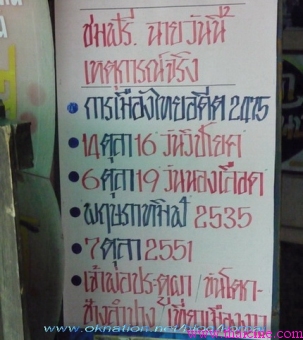 ชมฟรี. ฉายวันนี้
เหตุการณ์จริง
• การเมืองไทยอดีต 2475
• 14 ตุลา 16 วันวิปโยค
• 6 ตุลา 19 วันนองเลือด
• พฤษภาทมิฬ 2535
• 7 ตุลา 2551
• เจ้าพ่อประตูผา/ขันโตก-
ช้างลำปาง/เที่ยวเมือง
www.oknation.net/blog/